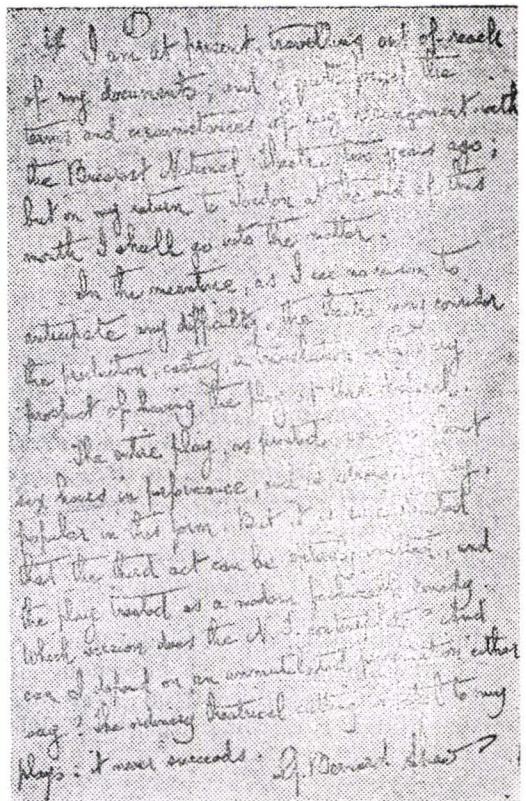 I am at present travelling out of reach
of my documents, and I quite forget the
terms and circumstances of my arrangement with
the Bucarest National Theatre two years ago;
but on my return to London at the end of this
month I shall go into the matter.
In the meantime, as I see no reason to
anticipate any difficulty, the theatre may consider
the production, casting, translation and
of having the play at their
The entire play, as printed, about
six hours in performance, and is
popular in this form. But it is
that the third act can be entirely omitted, and
the play treated as a modern comedy.
Which version does the N. T. contemplate? And
can I depend on an unmutilated either
way? The ordinary theatrical cutting is to my
plays: it never succeeds. G. Bernard Shaw